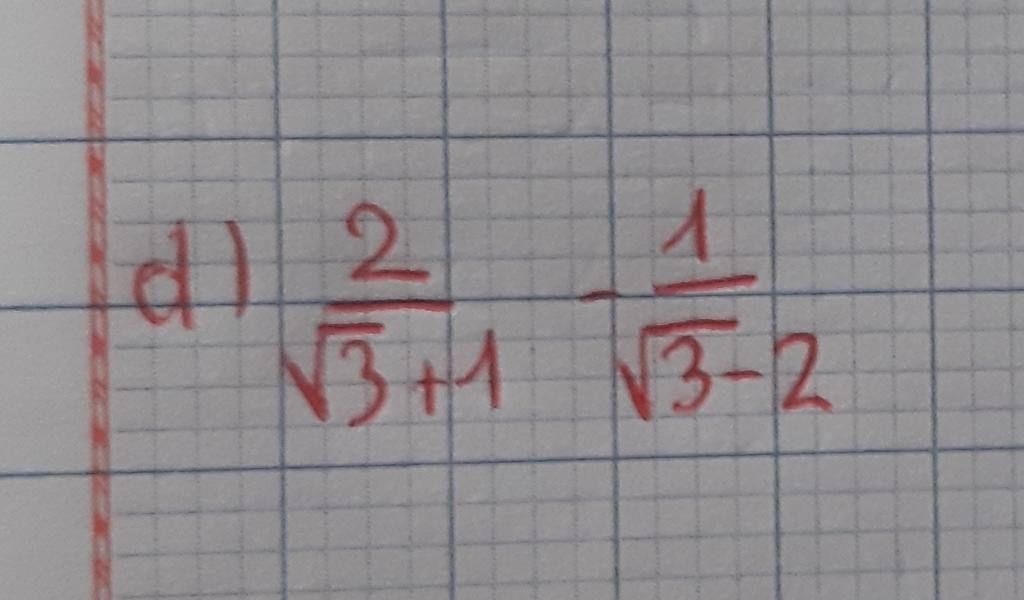 d) \frac{2}{\sqrt{3}+1} - \frac{1}{\sqrt{3}-2}